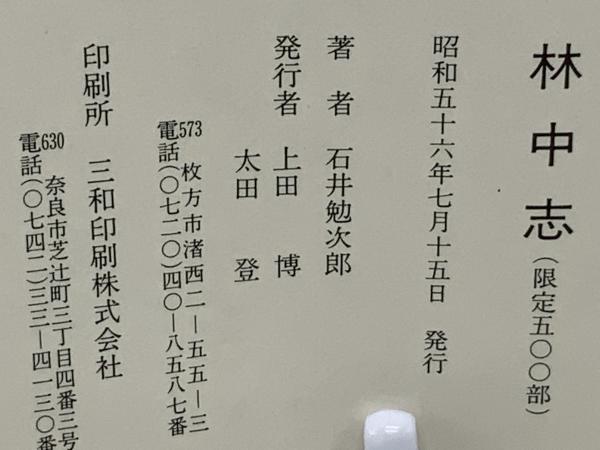 林中志（限定五〇〇部）
昭和五十六年七月十五日 発行
著者 石井勉次郎
発行者 上田 博
太田 登
573 枚方市渚西二―五五―三
電話（〇七二〇）四〇―八五八七番
印刷所 三和印刷株式会社
630 奈良市芝辻町三丁目四番三号
電話（〇七四二）三三―四一三〇番